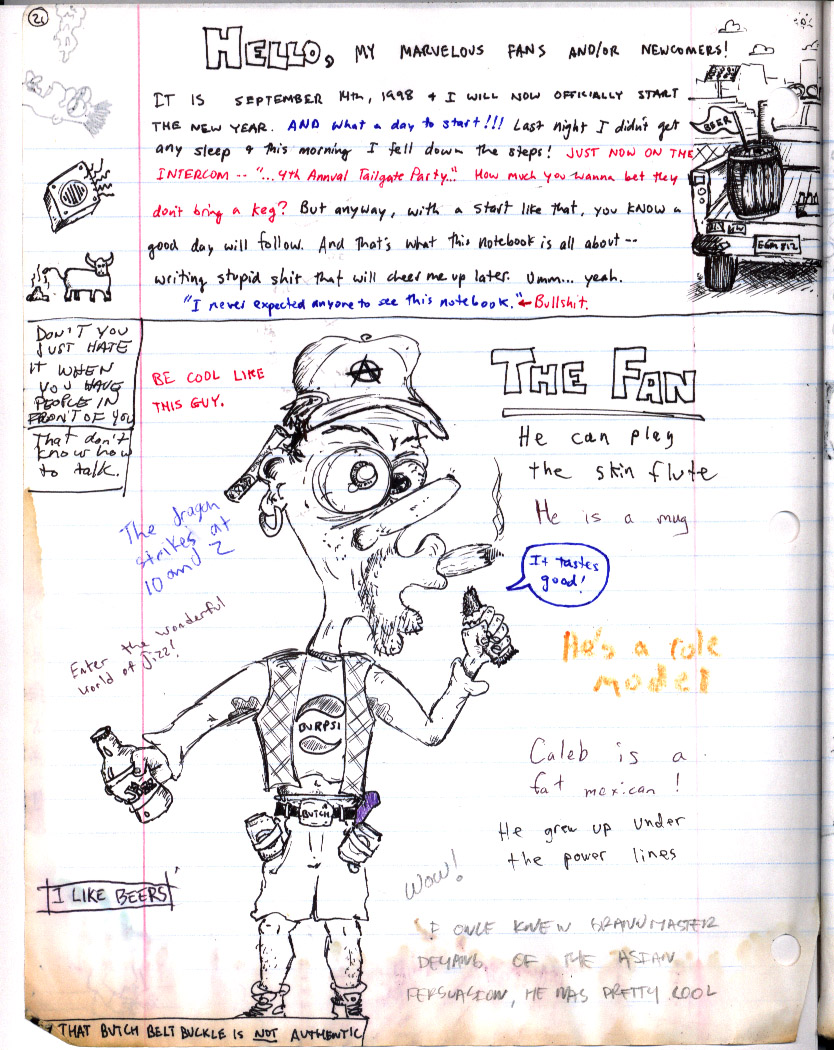 21
HELLO, MY MARVELOUS FANS AND/OR NEWCOMERS!
IT IS SEPTEMBER 14th, 1998 & I WILL NOW OFFICIALLY START
THE NEW YEAR. AND what a day to start!!! Last night I didn't get
any sleep & this morning I fell down the steps! JUST NOW ON THE
INTERCOM -- "...4th Annual Tailgate Party..." How much you wanna bet they
don't bring a keg? But anyway, with a start like that, you KNOW a
good day will follow. And that's what this notebook is all about --
writing stupid shit that will cheer me up later. Umm... yeah.
"I never expected anyone to see this notebook." Bullshit.
BEER
DON'T YOU
JUST HATE
IT WHEN
YOU HAVE
PEOPLE IN
FRONT OF YOU
That don't
know how
to talk.
BE COOL LIKE
THIS GUY.
THE FAN
He can play
the skin flute
He is a mug
The dragon
strikes at
10 and 2
It tastes
good!
Enter the wonderful
world of Jizz!
He's a role
model
BURPSI
Caleb is a
fat mexican!
BUTCH
He grew up under
the power lines
Wow!
I LIKE BEERS
I ONCE KNEW GRANDMASTER
DEYANG OF THE ASIAN
PERSUASION, HE WAS PRETTY COOL
THAT BUTCH BELT BUCKLE IS NOT AUTHENTIC